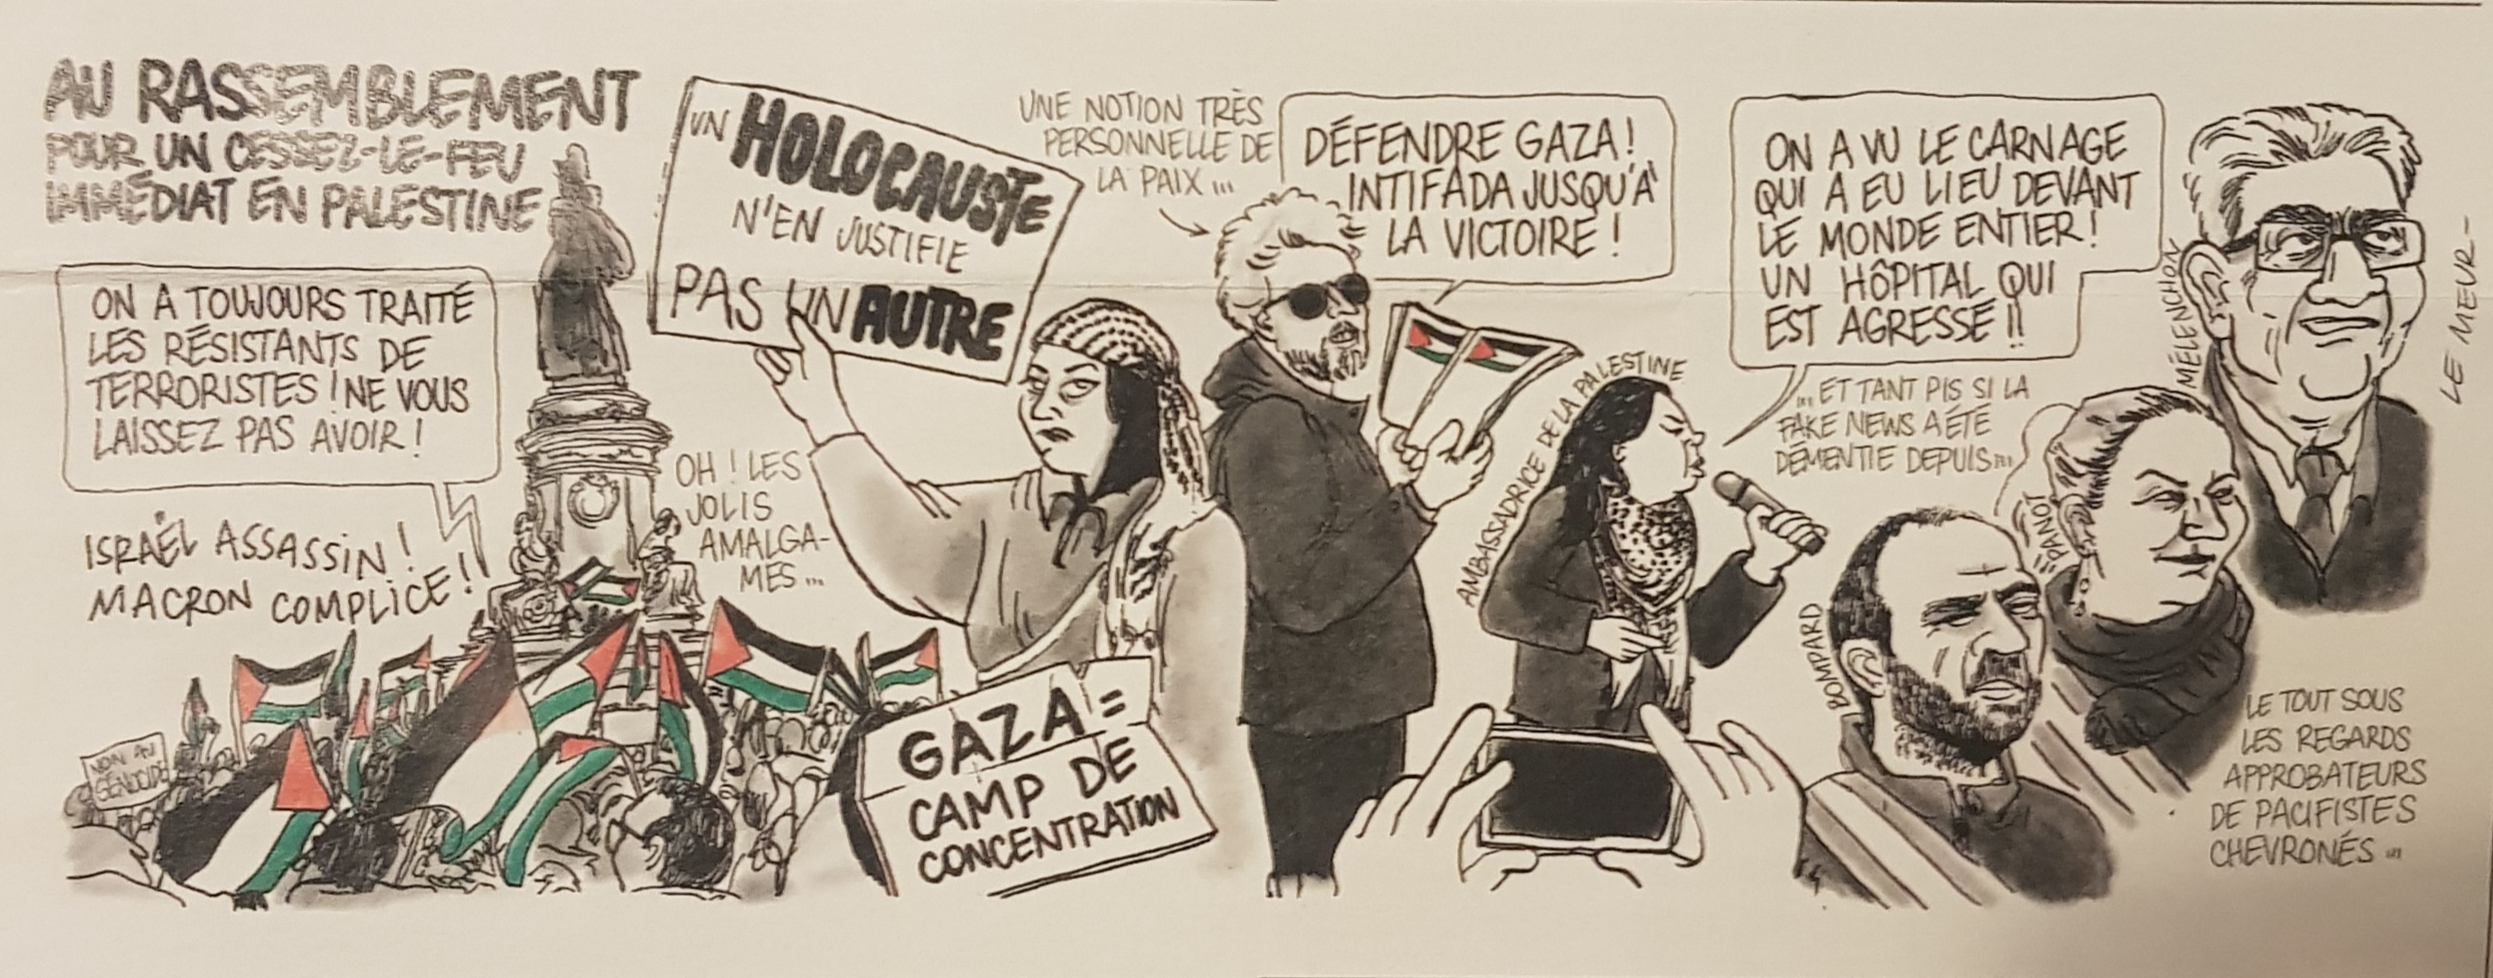 AU RASSEMBLEMENT
POUR UN CESSEZ-LE-FEU
IMMÉDIAT EN PALESTINE
ON A TOUJOURS TRAITÉ
LES RÉSISTANTS DE
TERRORISTES ! NE VOUS
LAISSEZ PAS AVOIR !
ISRAËL ASSASSIN !
MACRON COMPLICE !
NON AU
GÉNOCIDE
OH ! LES
JOLIS
AMALGA-
MES ...
UN HOLOCAUSTE
N'EN JUSTIFIE
PAS UN AUTRE
GAZA =
CAMP DE
CONCENTRATION
UNE NOTION TRÈS
PERSONNELLE DE
LA PAIX ...
DÉFENDRE GAZA !
INTIFADA JUSQU'À
LA VICTOIRE !
AMBASSADRICE DE LA PALESTINE
ON A VU LE CARNAGE
QUI A EU LIEU DEVANT
LE MONDE ENTIER !
UN HÔPITAL QUI
EST AGRESSÉ !!
... ET TANT PIS SI LA
FAKE NEWS A ÉTÉ
DÉMENTIE DEPUIS ...
BOMPARD
PANOT
MÉLENCHON
LE TOUT SOUS
LES REGARDS
APPROBATEURS
DE PACIFISTES
CHEVRONÉS ...
LE MEUR-